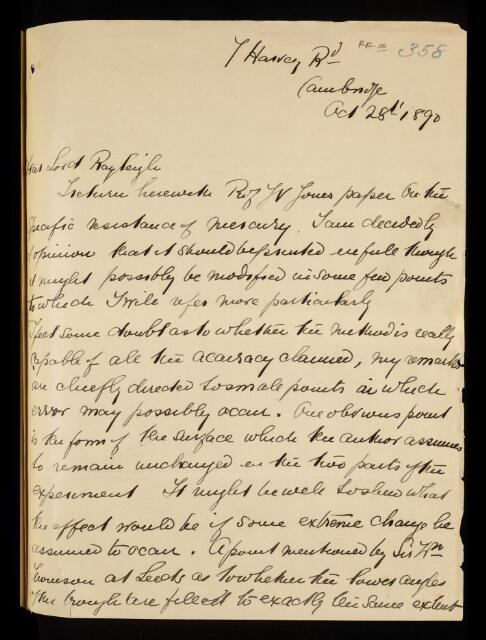 7 Harvey Rd RR 10 358
Cambridge
Oct 28th 1890
Dear Lord Rayleigh
I return herewith Prof J V Jones paper on the
specific resistance of mercury. I am decidedly
of opinion that it should be printed in full though
it might possibly be modified in some few points
to which I will refer more particularly
I feel some doubt as to whether the method is really
capable of all the accuracy claimed, my remarks
are chiefly directed to small points in which
error may possibly occur. One obvious point
is the form of the surface which the author assumes
to remain unchanged in the two parts of the
experiment It might be well to shew what
the effect would be if some extreme change be
assumed to occur. A point mentioned by Sir Wm
Thomson at Leeds as to whether the lower angles
of the trough are filled to exactly the same extent